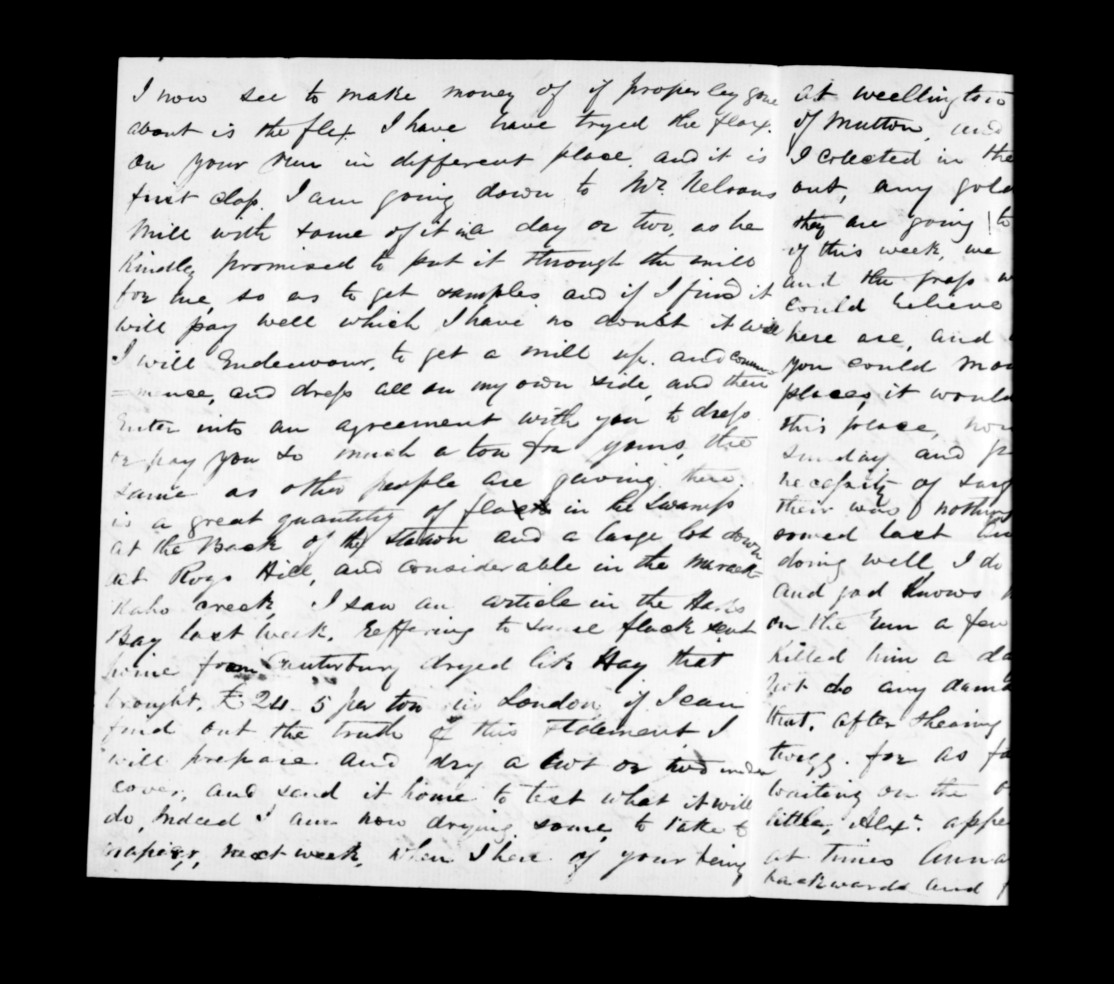 I now see to make money of if properley gone
about is the flex I have have tryed the flax
on your Run in different place, and it is
furst clap. I am going down to Mr. Nelsons
Mill with some of it in a day or two, as he
Kindley promised to put it through the mill
for me, so as to get samples and if I find it
will pay well which I have no doubt it will
I will Endeavour, to get a mill up. and comm-
=mence, and dress all on my own side, and then
Enter into an agreement with you to dress
or pay you so much a ton for yours, the
same as other people are giving there.
is a great quantity of flax in the Swamps
at the Back of the Station and a large lot down
at Roys Hill, and considerable in the
creek, I saw an article in the
Bay last week, Reffering to some flack sent
home from Canterbury dryed like Hay that
brought, £24-5 per ton in London, if I can
find out the truth of this statement I
will prepare and dry a Cwt or two under
cover, and send it home to test what it will
do, Indeed I am now drying some, to take to
napier, next week, when I here of your being
at weellington
of Mutton, and
I colected in the
out, any gold
they are going to
of this week, we
and the grass
could believe
here are, and
you could
places, it would
this place,
Sunday and
necessity of
their was nothing
somed last
doing well I do
and god knows
on the Run a few
Killed him a
not do any
that, after shearing
twigg. for as
waiting on the
little, Alexr.
at times
backwards and